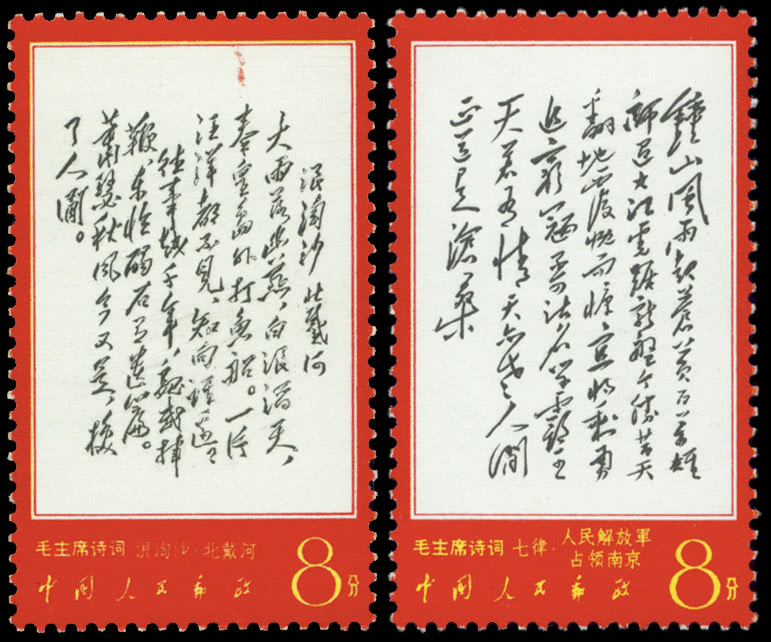 浪淘沙 北戴河
大雨落幽燕，白浪滔天，
秦皇島外打魚船。一片
汪洋都不見，知向誰邊？
往事越千年，魏武挥
鞭，东临碣石有遗篇。
萧瑟秋風今又是，換
了人間。
毛主席诗词 浪淘沙·北戴河
中国人民邮政
8分
鍾山風雨起蒼黄百萬雄
師過大江虎踞龍盤今勝昔天
翻地覆慨而慷宜將剩勇
追窮寇不可沽名學霸王
天若有情天亦老人間
正道是滄桑
毛主席诗词 七律·人民解放軍
占领南京
中国人民邮政
8分